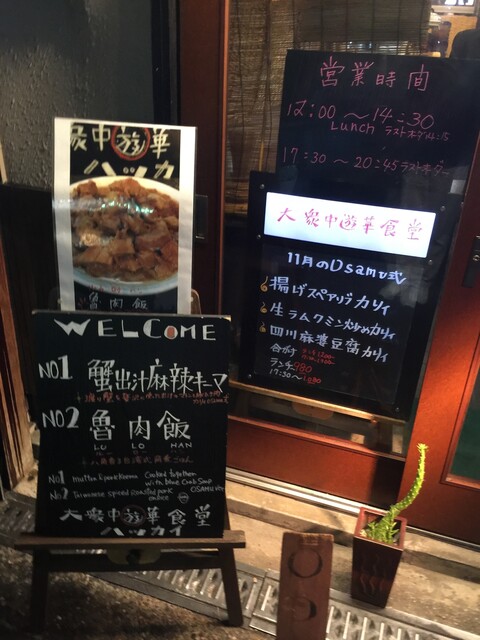 営業時間
12:00〜14:30
Lunch ラストオーダー14:15
17:30〜20:45ラストオーダー
大衆中遊華食堂
11月のOsamu式
揚げスペアリブカリィ
生ラムクミン炒めカリィ
四川麻婆豆腐カリィ
合がけ
ランチ980
17:30〜
衆中遊華
ハッカ
魯肉飯
WELCOME
NO1 蟹出汁麻辣キーマ
NO2 魯肉飯
LU LO HAN
No1 Mutton & pork Keema Cooked together
with blue Crab Soup
No2 Taiwanese spiced Roasted pork
大衆中遊華食堂
ハッカイ